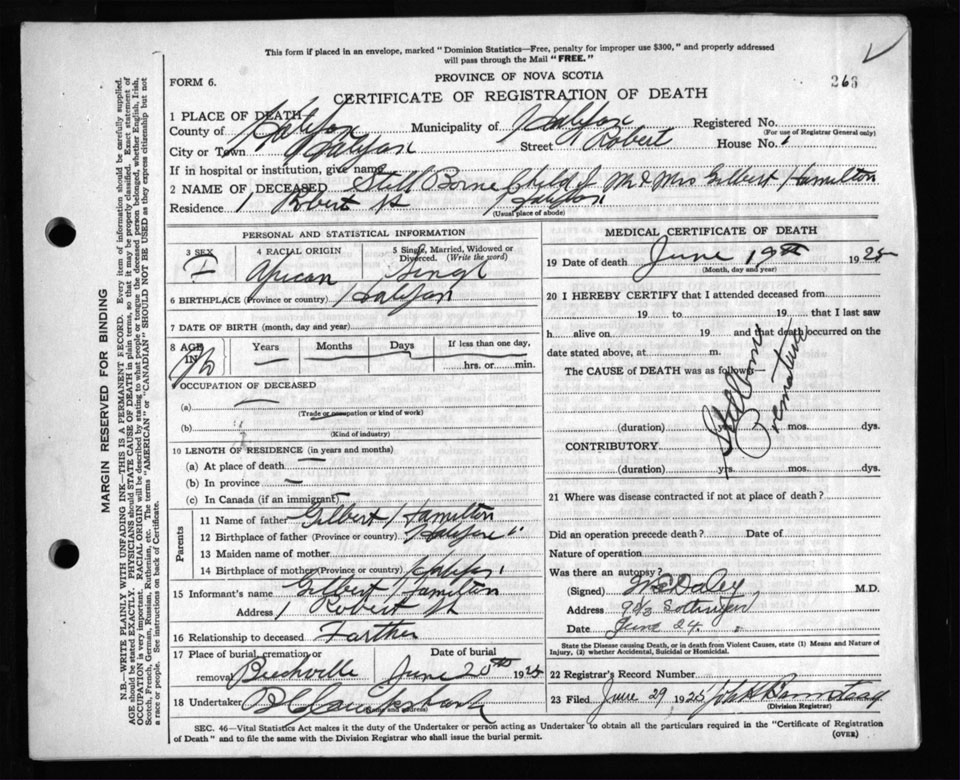 This form if placed in an envelope, marked "Dominion Statistics—Free, penalty for improper use $300," and properly addressed
will pass through the Mail "FREE."
PROVINCE OF NOVA SCOTIA
FORM 6.
263
CERTIFICATE OF REGISTRATION OF DEATH
1 PLACE OF DEATH
County of Halifax Municipality of Halifax Registered No.
(For use of Registrar General only)
City or Town Halifax Street Robert House No. 1
If in hospital or institution, give name
2 NAME OF DECEASED Still Borne Child of Mr & Mrs Gilbert Hamilton
Residence 1 Robert St Halifax
(Usual place of abode)
PERSONAL AND STATISTICAL INFORMATION
3 SEX 4 RACIAL ORIGIN African 5 Single, Married, Widowed or Divorced. (Write the word) Singl
6 BIRTHPLACE (Province or country) Halifax
7 DATE OF BIRTH (month, day and year)
8 AGE IN Years Months Days If less than one day, hrs. or min.
OCCUPATION OF DECEASED
(a)
(Trade or occupation or kind of work)
(b)
(Kind of industry)
10 LENGTH OF RESIDENCE (in years and months)
(a) At place of death
(b) In province
(c) In Canada (if an immigrant)
Parents
11 Name of father Gilbert Hamilton
12 Birthplace of father (Province or country) Halifax
13 Maiden name of mother
14 Birthplace of mother (Province or country) Halifax
15 Informant's name Gilbert Hamilton
Address 1 Robert St
16 Relationship to deceased Farther
17 Place of burial, cremation or removal Beechville Date of burial June 20th 1925
18 Undertaker
(Name and address)
MEDICAL CERTIFICATE OF DEATH
19 Date of death June 19th 1925
(Month, day and year)
20 I HEREBY CERTIFY that I attended deceased from
19 to 19 that I last saw
h alive on 19 and that death occurred on the
date stated above, at m.
The CAUSE of DEATH was as follows—
Stillborn
Premature
(duration) yrs. mos. dys.
CONTRIBUTORY
(duration) yrs. mos. dys.
21 Where was disease contracted if not at place of death?
Did an operation precede death? Date of
Nature of operation
Was there an autopsy?
(Signed) M.D.
Address
Date June 24.
State the Disease causing Death, or in death from Violent Causes, state (1) Means and Nature of
Injury, (2) whether Accidental, Suicidal or Homicidal.
22 Registrar's Record Number
23 Filed June 29 1925
(Division Registrar)
SEC. 46—Vital Statistics Act makes it the duty of the Undertaker or person acting as Undertaker to obtain all the particulars required in the "Certificate of Registration
of Death" and to file the same with the Division Registrar who shall issue the burial permit.
(OVER)
MARGIN RESERVED FOR BINDING
N.B.—WRITE PLAINLY WITH UNFADING INK—THIS IS A PERMANENT RECORD. Every item of information should be carefully supplied.
AGE should be stated EXACTLY. PHYSICIANS should STATE CAUSE OF DEATH in plain terms, so that it may be properly classified. Exact statement of
OCCUPATION is very important. RACIAL ORIGIN will be described by stating to what people or tongue the deceased person belonged, whether English, Irish,
Scotch, French, German, Russian, Ruthenian, etc. The terms "AMERICAN" or "CANADIAN" SHOULD NOT BE USED as they express citizenship but not
a race or people. See instructions on back of Certificate.